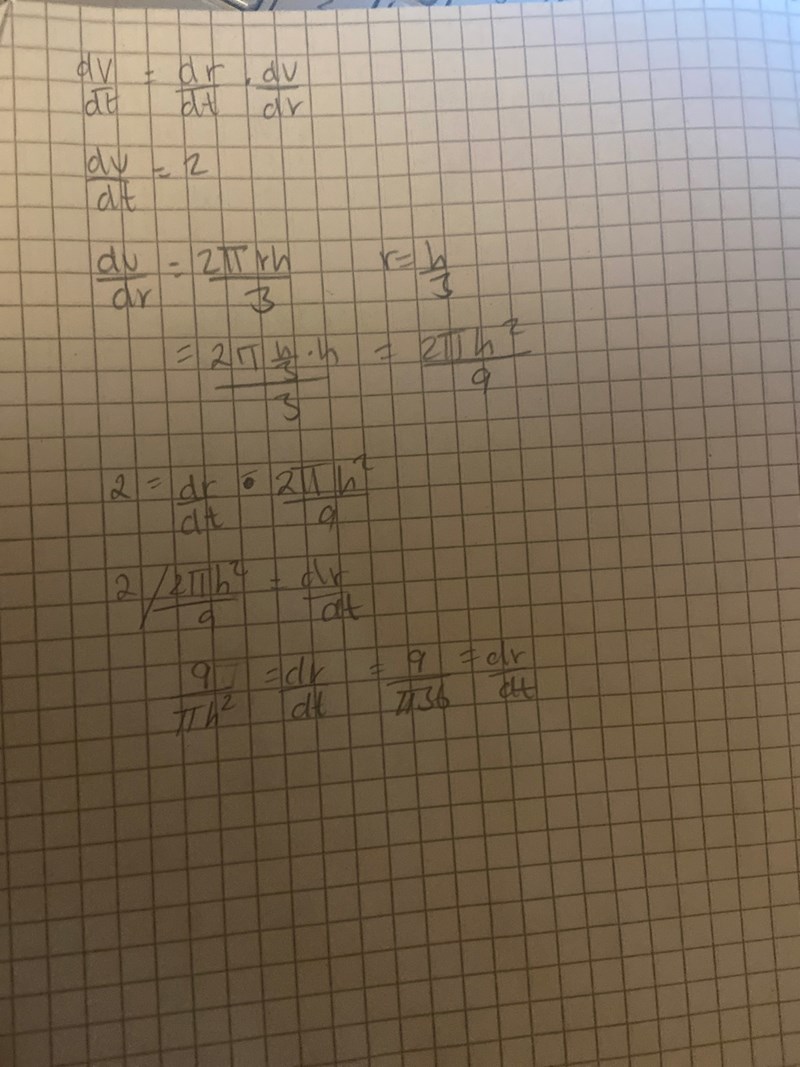 dv/dt = dr/dt · dv/dr
dv/dt = 2
dv/dr = 2πrh/3 r = h/3
= (2π h/3 · h)/3 = 2πh²/9
2 = dr/dt • 2πh²/9
2 / 2πh²/9 = dr/dt
9/πh² = dr/dt = 9/π36 = dr/dt